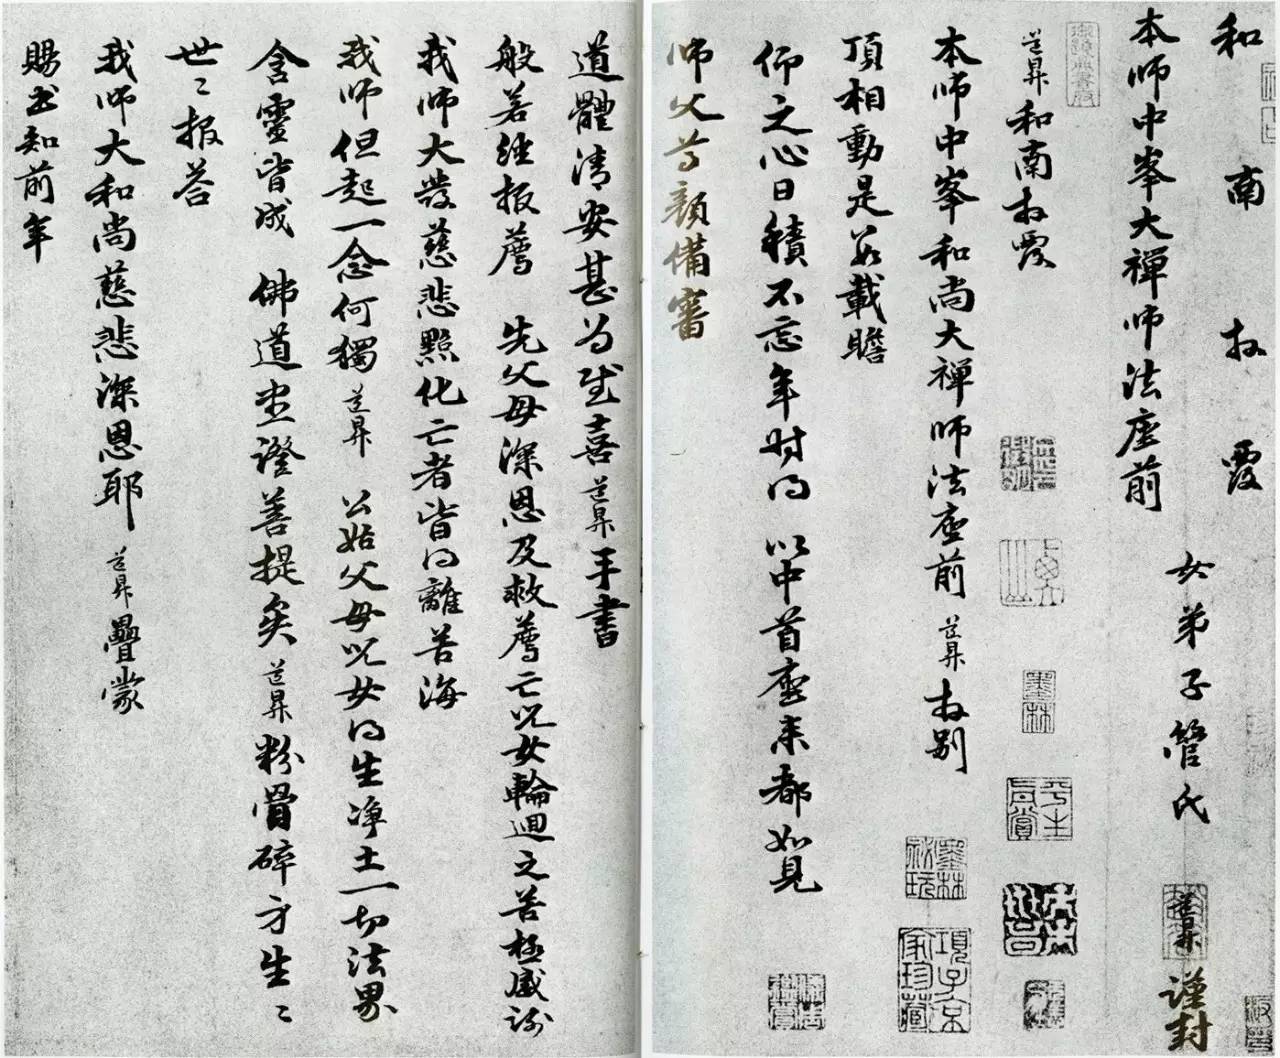 和南拜覆
本师中峯大禪师法座前
女弟子管氏道昇謹封
道昇和南拜覆
本师中峯和尚大禪师法座前道昇拜别
頂相動是數載瞻
仰之心日積不忘年时得以中首座来都如見
师父尊顔備審
道體清安甚为慰喜道昇手書
般若经报薦先父母深恩及救薦亡兒女輪迴之苦極感谢
我师大發慈悲點化亡者皆得離苦海
我师但起一念何獨道昇公姑父母兒女得生净土一切法界
含靈皆成佛道尽證菩提矣道昇粉骨碎身生〻
世〻报答
我师大和尚慈悲深恩耶道昇疊蒙
賜书知前年
墨林
平生真賞
墨林秘玩
項子京家珍藏